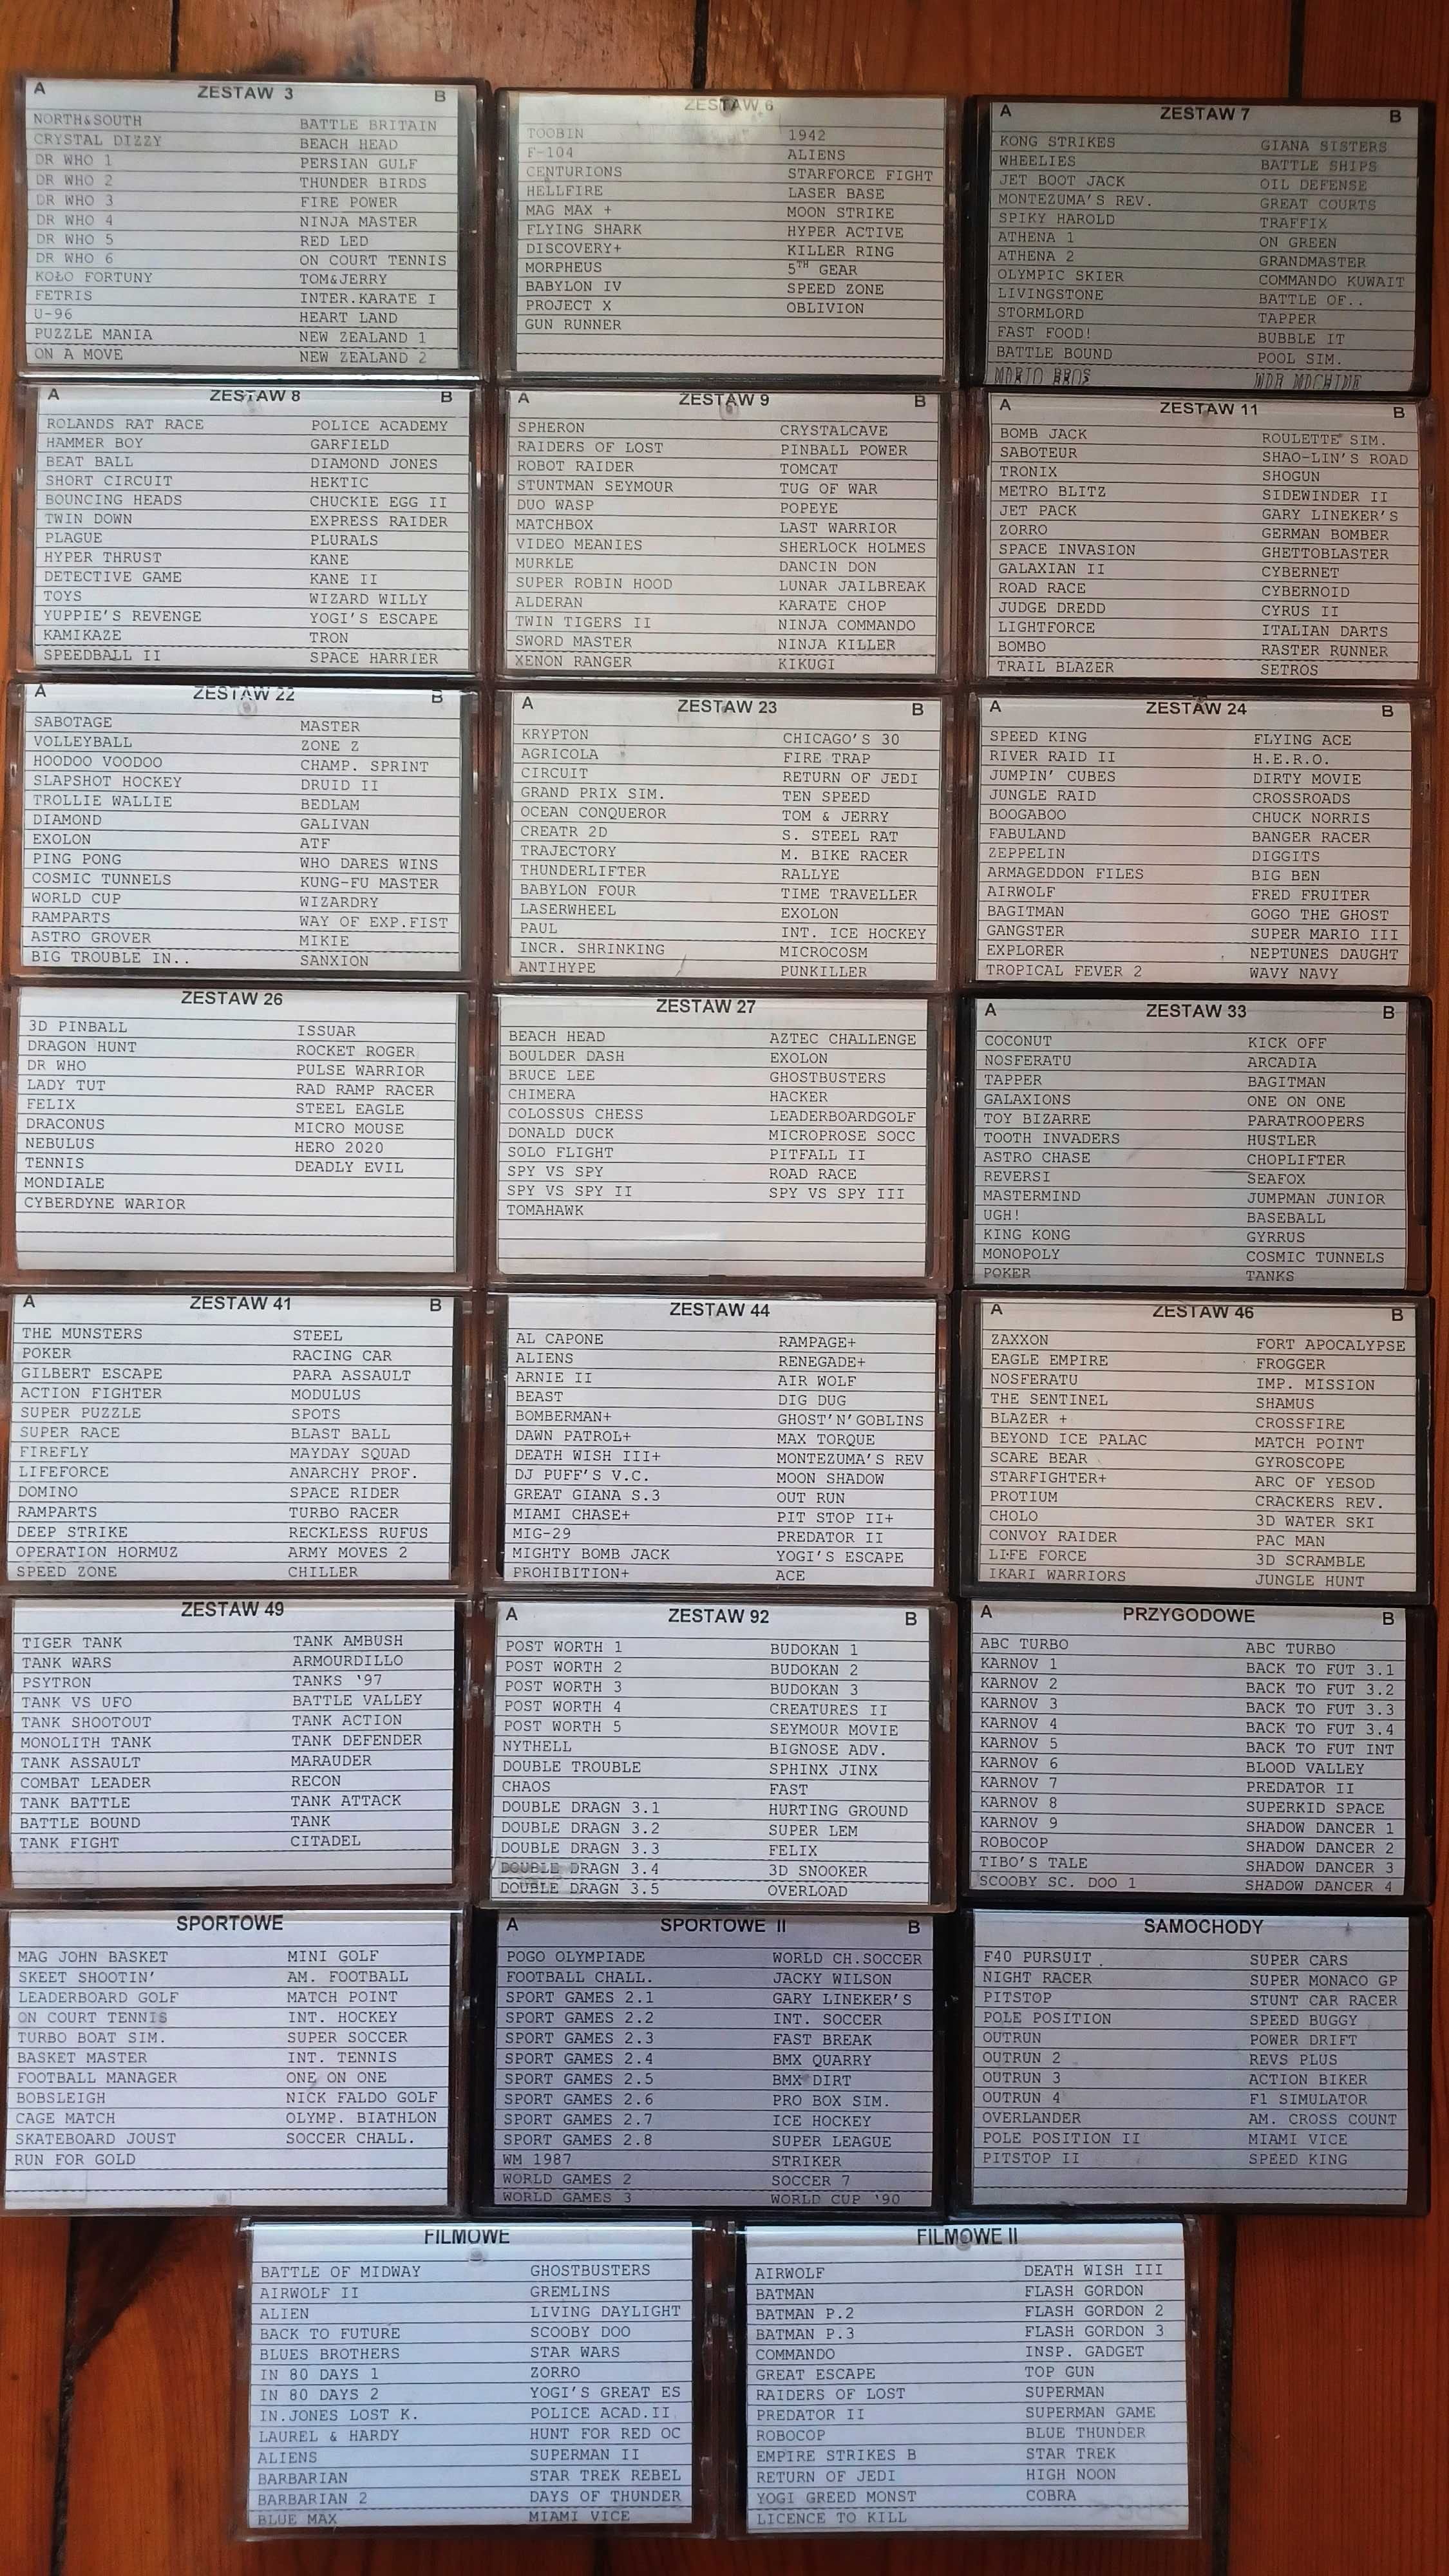 A ZESTAW 3 B
NORTH&SOUTH BATTLE BRITAIN
CRYSTAL DIZZY BEACH HEAD
DR WHO 1 PERSIAN GULF
DR WHO 2 THUNDER BIRDS
DR WHO 3 FIRE POWER
DR WHO 4 NINJA MASTER
DR WHO 5 RED LED
DR WHO 6 ON COURT TENNIS
KOŁO FORTUNY TOM&JERRY
FETRIS INTER.KARATE I
U-96 HEART LAND
PUZZLE MANIA NEW ZEALAND 1
ON A MOVE NEW ZEALAND 2
ZESTAW 6
TOOBIN 1942
F-104 ALIENS
CENTURIONS STARFORCE FIGHT
HELLFIRE LASER BASE
MAG MAX + MOON STRIKE
FLYING SHARK HYPER ACTIVE
DISCOVERY+ KILLER RING
MORPHEUS 5TH GEAR
BABYLON IV SPEED ZONE
PROJECT X OBLIVION
GUN RUNNER
A ZESTAW 7 B
KONG STRIKES GIANA SISTERS
WHEELIES BATTLE SHIPS
JET BOOT JACK OIL DEFENSE
MONTEZUMA'S REV. GREAT COURTS
SPIKY HAROLD TRAFFIX
ATHENA 1 ON GREEN
ATHENA 2 GRANDMASTER
OLYMPIC SKIER COMMANDO KUWAIT
LIVINGSTONE BATTLE OF..
STORMLORD TAPPER
FAST FOOD! BUBBLE IT
BATTLE BOUND POOL SIM.
MARIO BROS WAR MACHINE
A ZESTAW 8 B
ROLANDS RAT RACE POLICE ACADEMY
HAMMER BOY GARFIELD
BEAT BALL DIAMOND JONES
SHORT CIRCUIT HEKTIC
BOUNCING HEADS CHUCKIE EGG II
TWIN DOWN EXPRESS RAIDER
PLAGUE PLURALS
HYPER THRUST KANE
DETECTIVE GAME KANE II
TOYS WIZARD WILLY
YUPPIE'S REVENGE YOGI'S ESCAPE
KAMIKAZE TRON
SPEEDBALL II SPACE HARRIER
A ZESTAW 9 B
SPHERON CRYSTALCAVE
RAIDERS OF LOST PINBALL POWER
ROBOT RAIDER TOMCAT
STUNTMAN SEYMOUR TUG OF WAR
DUO WASP POPEYE
MATCHBOX LAST WARRIOR
VIDEO MEANIES SHERLOCK HOLMES
MURKLE DANCIN DON
SUPER ROBIN HOOD LUNAR JAILBREAK
ALDERAN KARATE CHOP
TWIN TIGERS II NINJA COMMANDO
SWORD MASTER NINJA KILLER
XENON RANGER KIKUGI
A ZESTAW 11 B
BOMB JACK ROULETTE SIM.
SABOTEUR SHAO-LIN'S ROAD
TRONIX SHOGUN
METRO BLITZ SIDEWINDER II
JET PACK GARY LINEKER'S
ZORRO GERMAN BOMBER
SPACE INVASION GHETTOBLASTER
GALAXIAN II CYBERNET
ROAD RACE CYBERNOID
JUDGE DREDD CYRUS II
LIGHTFORCE ITALIAN DARTS
BOMBO RASTER RUNNER
TRAIL BLAZER SETROS
A ZESTAW 22 B
SABOTAGE MASTER
VOLLEYBALL ZONE Z
HOODOO VOODOO CHAMP. SPRINT
SLAPSHOT HOCKEY DRUID II
TROLLIE WALLIE BEDLAM
DIAMOND GALIVAN
EXOLON ATF
PING PONG WHO DARES WINS
COSMIC TUNNELS KUNG-FU MASTER
WORLD CUP WIZARDRY
RAMPARTS WAY OF EXP.FIST
ASTRO GROVER MIKIE
BIG TROUBLE IN.. SANXION
A ZESTAW 23 B
KRYPTON CHICAGO'S 30
AGRICOLA FIRE TRAP
CIRCUIT RETURN OF JEDI
GRAND PRIX SIM. TEN SPEED
OCEAN CONQUEROR TOM & JERRY
CREATR 2D S. STEEL RAT
TRAJECTORY M. BIKE RACER
THUNDERLIFTER RALLYE
BABYLON FOUR TIME TRAVELLER
LASERWHEEL EXOLON
PAUL INT. ICE HOCKEY
INCR. SHRINKING MICROCOSM
ANTIHYPE PUNKILLER
A ZESTAW 24 B
SPEED KING FLYING ACE
RIVER RAID II H.E.R.O.
JUMPIN' CUBES DIRTY MOVIE
JUNGLE RAID CROSSROADS
BOOGABOO CHUCK NORRIS
FABULAND BANGER RACER
ZEPPELIN DIGGITS
ARMAGEDDON FILES BIG BEN
AIRWOLF FRED FRUITER
BAGITMAN GOGO THE GHOST
GANGSTER SUPER MARIO III
EXPLORER NEPTUNES DAUGHT
TROPICAL FEVER 2 WAVY NAVY
ZESTAW 26
3D PINBALL ISSUAR
DRAGON HUNT ROCKET ROGER
DR WHO PULSE WARRIOR
LADY TUT RAD RAMP RACER
FELIX STEEL EAGLE
DRACONUS MICRO MOUSE
NEBULUS HERO 2020
TENNIS DEADLY EVIL
MONDIALE
CYBERDYNE WARIOR
ZESTAW 27
BEACH HEAD AZTEC CHALLENGE
BOULDER DASH EXOLON
BRUCE LEE GHOSTBUSTERS
CHIMERA HACKER
COLOSSUS CHESS LEADERBOARDGOLF
DONALD DUCK MICROPROSE SOCC
SOLO FLIGHT PITFALL II
SPY VS SPY ROAD RACE
SPY VS SPY II SPY VS SPY III
TOMAHAWK
A ZESTAW 33 B
COCONUT KICK OFF
NOSFERATU ARCADIA
TAPPER BAGITMAN
GALAXIONS ONE ON ONE
TOY BIZARRE PARATROOPERS
TOOTH INVADERS HUSTLER
ASTRO CHASE CHOPLIFTER
REVERSI SEAFOX
MASTERMIND JUMPMAN JUNIOR
UGH! BASEBALL
KING KONG GYRRUS
MONOPOLY COSMIC TUNNELS
POKER TANKS
A ZESTAW 41 B
THE MUNSTERS STEEL
POKER RACING CAR
GILBERT ESCAPE PARA ASSAULT
ACTION FIGHTER MODULUS
SUPER PUZZLE SPOTS
SUPER RACE BLAST BALL
FIREFLY MAYDAY SQUAD
LIFEFORCE ANARCHY PROF.
DOMINO SPACE RIDER
RAMPARTS TURBO RACER
DEEP STRIKE RECKLESS RUFUS
OPERATION HORMUZ ARMY MOVES 2
SPEED ZONE CHILLER
ZESTAW 44
AL CAPONE RAMPAGE+
ALIENS RENEGADE+
ARNIE II AIR WOLF
BEAST DIG DUG
BOMBERMAN+ GHOST'N'GOBLINS
DAWN PATROL+ MAX TORQUE
DEATH WISH III+ MONTEZUMA'S REV
DJ PUFF'S V.C. MOON SHADOW
GREAT GIANA S.3 OUT RUN
MIAMI CHASE+ PIT STOP II+
MIG-29 PREDATOR II
MIGHTY BOMB JACK YOGI'S ESCAPE
PROHIBITION+ ACE
A ZESTAW 46 B
ZAXXON FORT APOCALYPSE
EAGLE EMPIRE FROGGER
NOSFERATU IMP. MISSION
THE SENTINEL SHAMUS
BLAZER + CROSSFIRE
BEYOND ICE PALAC MATCH POINT
SCARE BEAR GYROSCOPE
STARFIGHTER+ ARC OF YESOD
PROTIUM CRACKERS REV.
CHOLO 3D WATER SKI
CONVOY RAIDER PAC MAN
LIFE FORCE 3D SCRAMBLE
IKARI WARRIORS JUNGLE HUNT
ZESTAW 49
TIGER TANK TANK AMBUSH
TANK WARS ARMOURDILLO
PSYTRON TANKS '97
TANK VS UFO BATTLE VALLEY
TANK SHOOTOUT TANK ACTION
MONOLITH TANK TANK DEFENDER
TANK ASSAULT MARAUDER
COMBAT LEADER RECON
TANK BATTLE TANK ATTACK
BATTLE BOUND TANK
TANK FIGHT CITADEL
A ZESTAW 92 B
POST WORTH 1 BUDOKAN 1
POST WORTH 2 BUDOKAN 2
POST WORTH 3 BUDOKAN 3
POST WORTH 4 CREATURES II
POST WORTH 5 SEYMOUR MOVIE
NYTHELL BIGNOSE ADV.
DOUBLE TROUBLE SPHINX JINX
CHAOS FAST
DOUBLE DRAGN 3.1 HURTING GROUND
DOUBLE DRAGN 3.2 SUPER LEM
DOUBLE DRAGN 3.3 FELIX
DOUBLE DRAGN 3.4 3D SNOOKER
DOUBLE DRAGN 3.5 OVERLOAD
A PRZYGODOWE B
ABC TURBO ABC TURBO
KARNOV 1 BACK TO FUT 3.1
KARNOV 2 BACK TO FUT 3.2
KARNOV 3 BACK TO FUT 3.3
KARNOV 4 BACK TO FUT 3.4
KARNOV 5 BACK TO FUT INT
KARNOV 6 BLOOD VALLEY
KARNOV 7 PREDATOR II
KARNOV 8 SUPERKID SPACE
KARNOV 9 SHADOW DANCER 1
ROBOCOP SHADOW DANCER 2
TIBO'S TALE SHADOW DANCER 3
SCOOBY SC. DOO 1 SHADOW DANCER 4
SPORTOWE
MAG JOHN BASKET MINI GOLF
SKEET SHOOTIN' AM. FOOTBALL
LEADERBOARD GOLF MATCH POINT
ON COURT TENNIS INT. HOCKEY
TURBO BOAT SIM. SUPER SOCCER
BASKET MASTER INT. TENNIS
FOOTBALL MANAGER ONE ON ONE
BOBSLEIGH NICK FALDO GOLF
CAGE MATCH OLYMP. BIATHLON
SKATEBOARD JOUST SOCCER CHALL.
RUN FOR GOLD
A SPORTOWE II B
POGO OLYMPIADE WORLD CH.SOCCER
FOOTBALL CHALL. JACKY WILSON
SPORT GAMES 2.1 GARY LINEKER'S
SPORT GAMES 2.2 INT. SOCCER
SPORT GAMES 2.3 FAST BREAK
SPORT GAMES 2.4 BMX QUARRY
SPORT GAMES 2.5 BMX DIRT
SPORT GAMES 2.6 PRO BOX SIM.
SPORT GAMES 2.7 ICE HOCKEY
SPORT GAMES 2.8 SUPER LEAGUE
WM 1987 STRIKER
WORLD GAMES 2 SOCCER 7
WORLD GAMES 3 WORLD CUP '90
SAMOCHODY
F40 PURSUIT SUPER CARS
NIGHT RACER SUPER MONACO GP
PITSTOP STUNT CAR RACER
POLE POSITION SPEED BUGGY
OUTRUN POWER DRIFT
OUTRUN 2 REVS PLUS
OUTRUN 3 ACTION BIKER
OUTRUN 4 F1 SIMULATOR
OVERLANDER AM. CROSS COUNT
POLE POSITION II MIAMI VICE
PITSTOP II SPEED KING
FILMOWE
BATTLE OF MIDWAY GHOSTBUSTERS
AIRWOLF II GREMLINS
ALIEN LIVING DAYLIGHT
BACK TO FUTURE SCOOBY DOO
BLUES BROTHERS STAR WARS
IN 80 DAYS 1 ZORRO
IN 80 DAYS 2 YOGI'S GREAT ES
IN.JONES LOST K. POLICE ACAD.II
LAUREL & HARDY HUNT FOR RED OC
ALIENS SUPERMAN II
BARBARIAN STAR TREK REBEL
BARBARIAN 2 DAYS OF THUNDER
BLUE MAX MIAMI VICE
FILMOWE II
AIRWOLF DEATH WISH III
BATMAN FLASH GORDON
BATMAN P.2 FLASH GORDON 2
BATMAN P.3 FLASH GORDON 3
COMMANDO INSP. GADGET
GREAT ESCAPE TOP GUN
RAIDERS OF LOST SUPERMAN
PREDATOR II SUPERMAN GAME
ROBOCOP BLUE THUNDER
EMPIRE STRIKES B STAR TREK
RETURN OF JEDI HIGH NOON
YOGI GREED MONST COBRA
LICENCE TO KILL